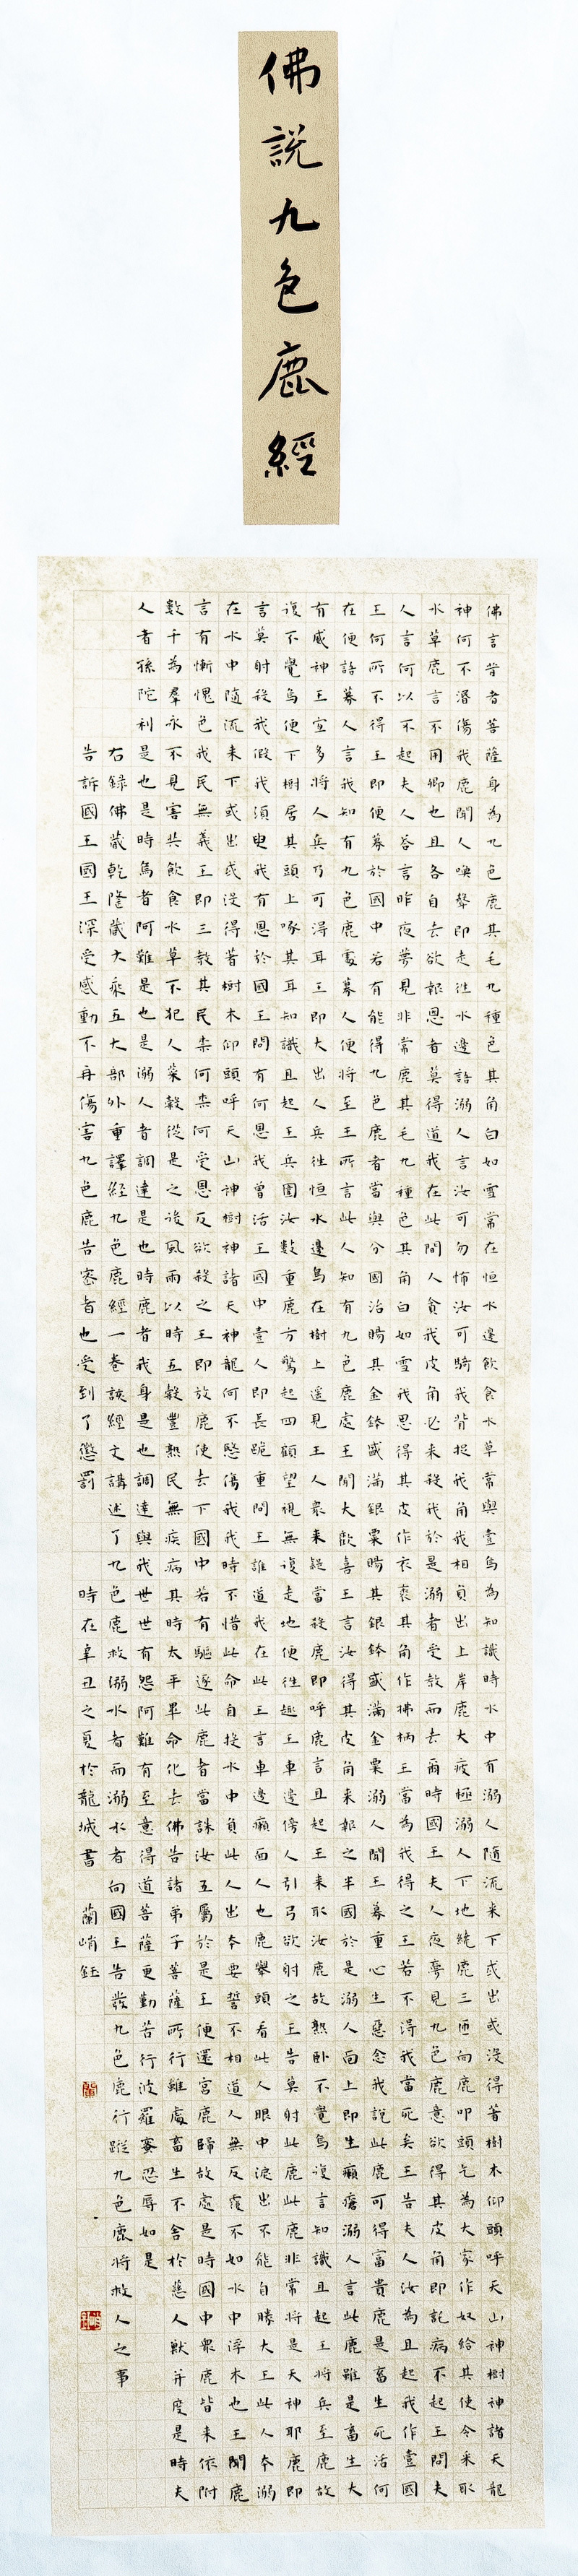 佛說九色鹿經
佛言昔者菩薩身為九色鹿其毛九種色其角白如雪常在恒水邊飲食水草常與壹烏為知識時水中有溺人隨流来下或出或沒得著樹木仰頭呼天山神樹神諸天龍
神何不潛傷我鹿聞人喚聲即走往水邊語溺人言汝可勿怖汝可騎我背捉我角我相負出上岸鹿大疲極溺人下地繞鹿三匝向鹿叩頭乞為大家作奴給其使令采取
水草鹿言不用卿也且各自去欲報恩者莫得道我在此間人貪我皮角必来殺我於是溺者受教而去爾時國王夫人夜夢見九色鹿意欲得其皮角即託病不起王問夫
人言何以不起夫人答言昨夜夢見非常鹿其毛九種色其角白如雪我思得其皮作衣裘其角作拂柄王當為我得之王若不得我當死矣王告夫人汝為且起我作壹國
王何所不得王即便募於國中若有能得九色鹿者當與分國治賜其金鉢盛滿銀粟賜其銀鉢盛滿金粟溺人聞王募重心生惡念我說此鹿可得富貴鹿是畜生死活何
在便語募人言我知有九色鹿處募人便將至王所言此人知有九色鹿處王聞大歡喜王言汝得其皮角来報之半國於是溺人面上即生癩瘡溺人言此鹿雖是畜生大
有威神王宜多將人兵乃可得耳王即大出人兵往恒水邊烏在樹上遥見王人衆来疑當殺鹿即呼鹿言且起王来取汝鹿故熟卧不覺烏復言知識且起王將兵至鹿故
復不覺烏便下樹居其頭上啄其耳知識且起王兵圍汝數重鹿方驚起四顧望視無復走地便往趣王車邊傍人引弓欲射之王告莫射此鹿此鹿非常將是天神耶鹿即
言莫射殺我假我須臾我有恩於國王問有何恩我曾活王國中壹人即長跪重問王誰道我在此王言車邊癩面人也鹿舉頭看此人眼中淚出不能自勝大王此人本溺
在水中隨流来下或出或沒得著樹木仰頭呼天山神樹神諸天神龍何不愍傷我我時不惜此命自投水中負此人出本要誓不相道人無反復不如水中浮木也王聞鹿
言有慚愧色我民無義王即三教其民柰何柰何受恩反欲殺之王即放鹿使去下國中若有驅逐此鹿者當誅汝五屬於是王便還宮鹿歸故處是時國中衆鹿皆来依附
數千為羣永不見害共飲食水草不犯人菜穀從是之後風雨以時五穀豐熟民無疾病其時太平畢命化去佛告諸弟子菩薩所行雖處畜生不舍於慈人獸并度是時夫
人者孫陀利是也是時烏者阿難是也是溺人者調達是也時鹿者我身是也調達與我世世有怨阿難有至意得道菩薩更勤苦行波羅蜜忍辱如是
右録佛藏乾隆藏大乘五大部外重譯經九色鹿經一卷該經文講述了九色鹿救溺水者而溺水者向國王告發九色鹿行蹤九色鹿將救人之事
告訴國王國王深受感動不再傷害九色鹿告密者也受到了懲罰 時在辛丑之夏於龍城書 蘭峭鈺